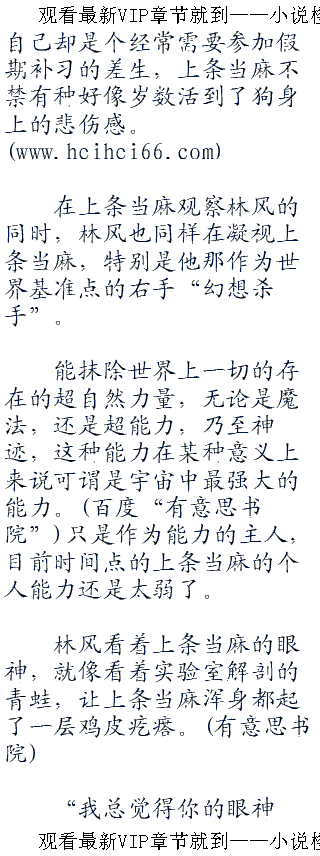 观看最新VIP章节就到——小说
自己却是个经常需要参加假
期补习的差生，上条当麻不
禁有种好像岁数活到了狗身
上的悲伤感。
(www.hcihci66.com)
在上条当麻观察林风的
同时，林风也同样在凝视上
条当麻，特别是他那作为世
界基准点的右手“幻想杀
手”。
能抹除世界上一切的存
在的超自然力量，无论是魔
法，还是超能力，乃至神
迹，这种能力在某种意义上
来说可谓是宇宙中最强大的
能力。(百度“有意思书
院”)只是作为能力的主人，
目前时间点的上条当麻的个
人能力还是太弱了。
林风看着上条当麻的眼
神，就像看着实验室解剖的
青蛙，让上条当麻浑身都起
了一层鸡皮疙瘩。(有意思书
院)
“我总觉得你的眼神
观看最新VIP章节就到——小说